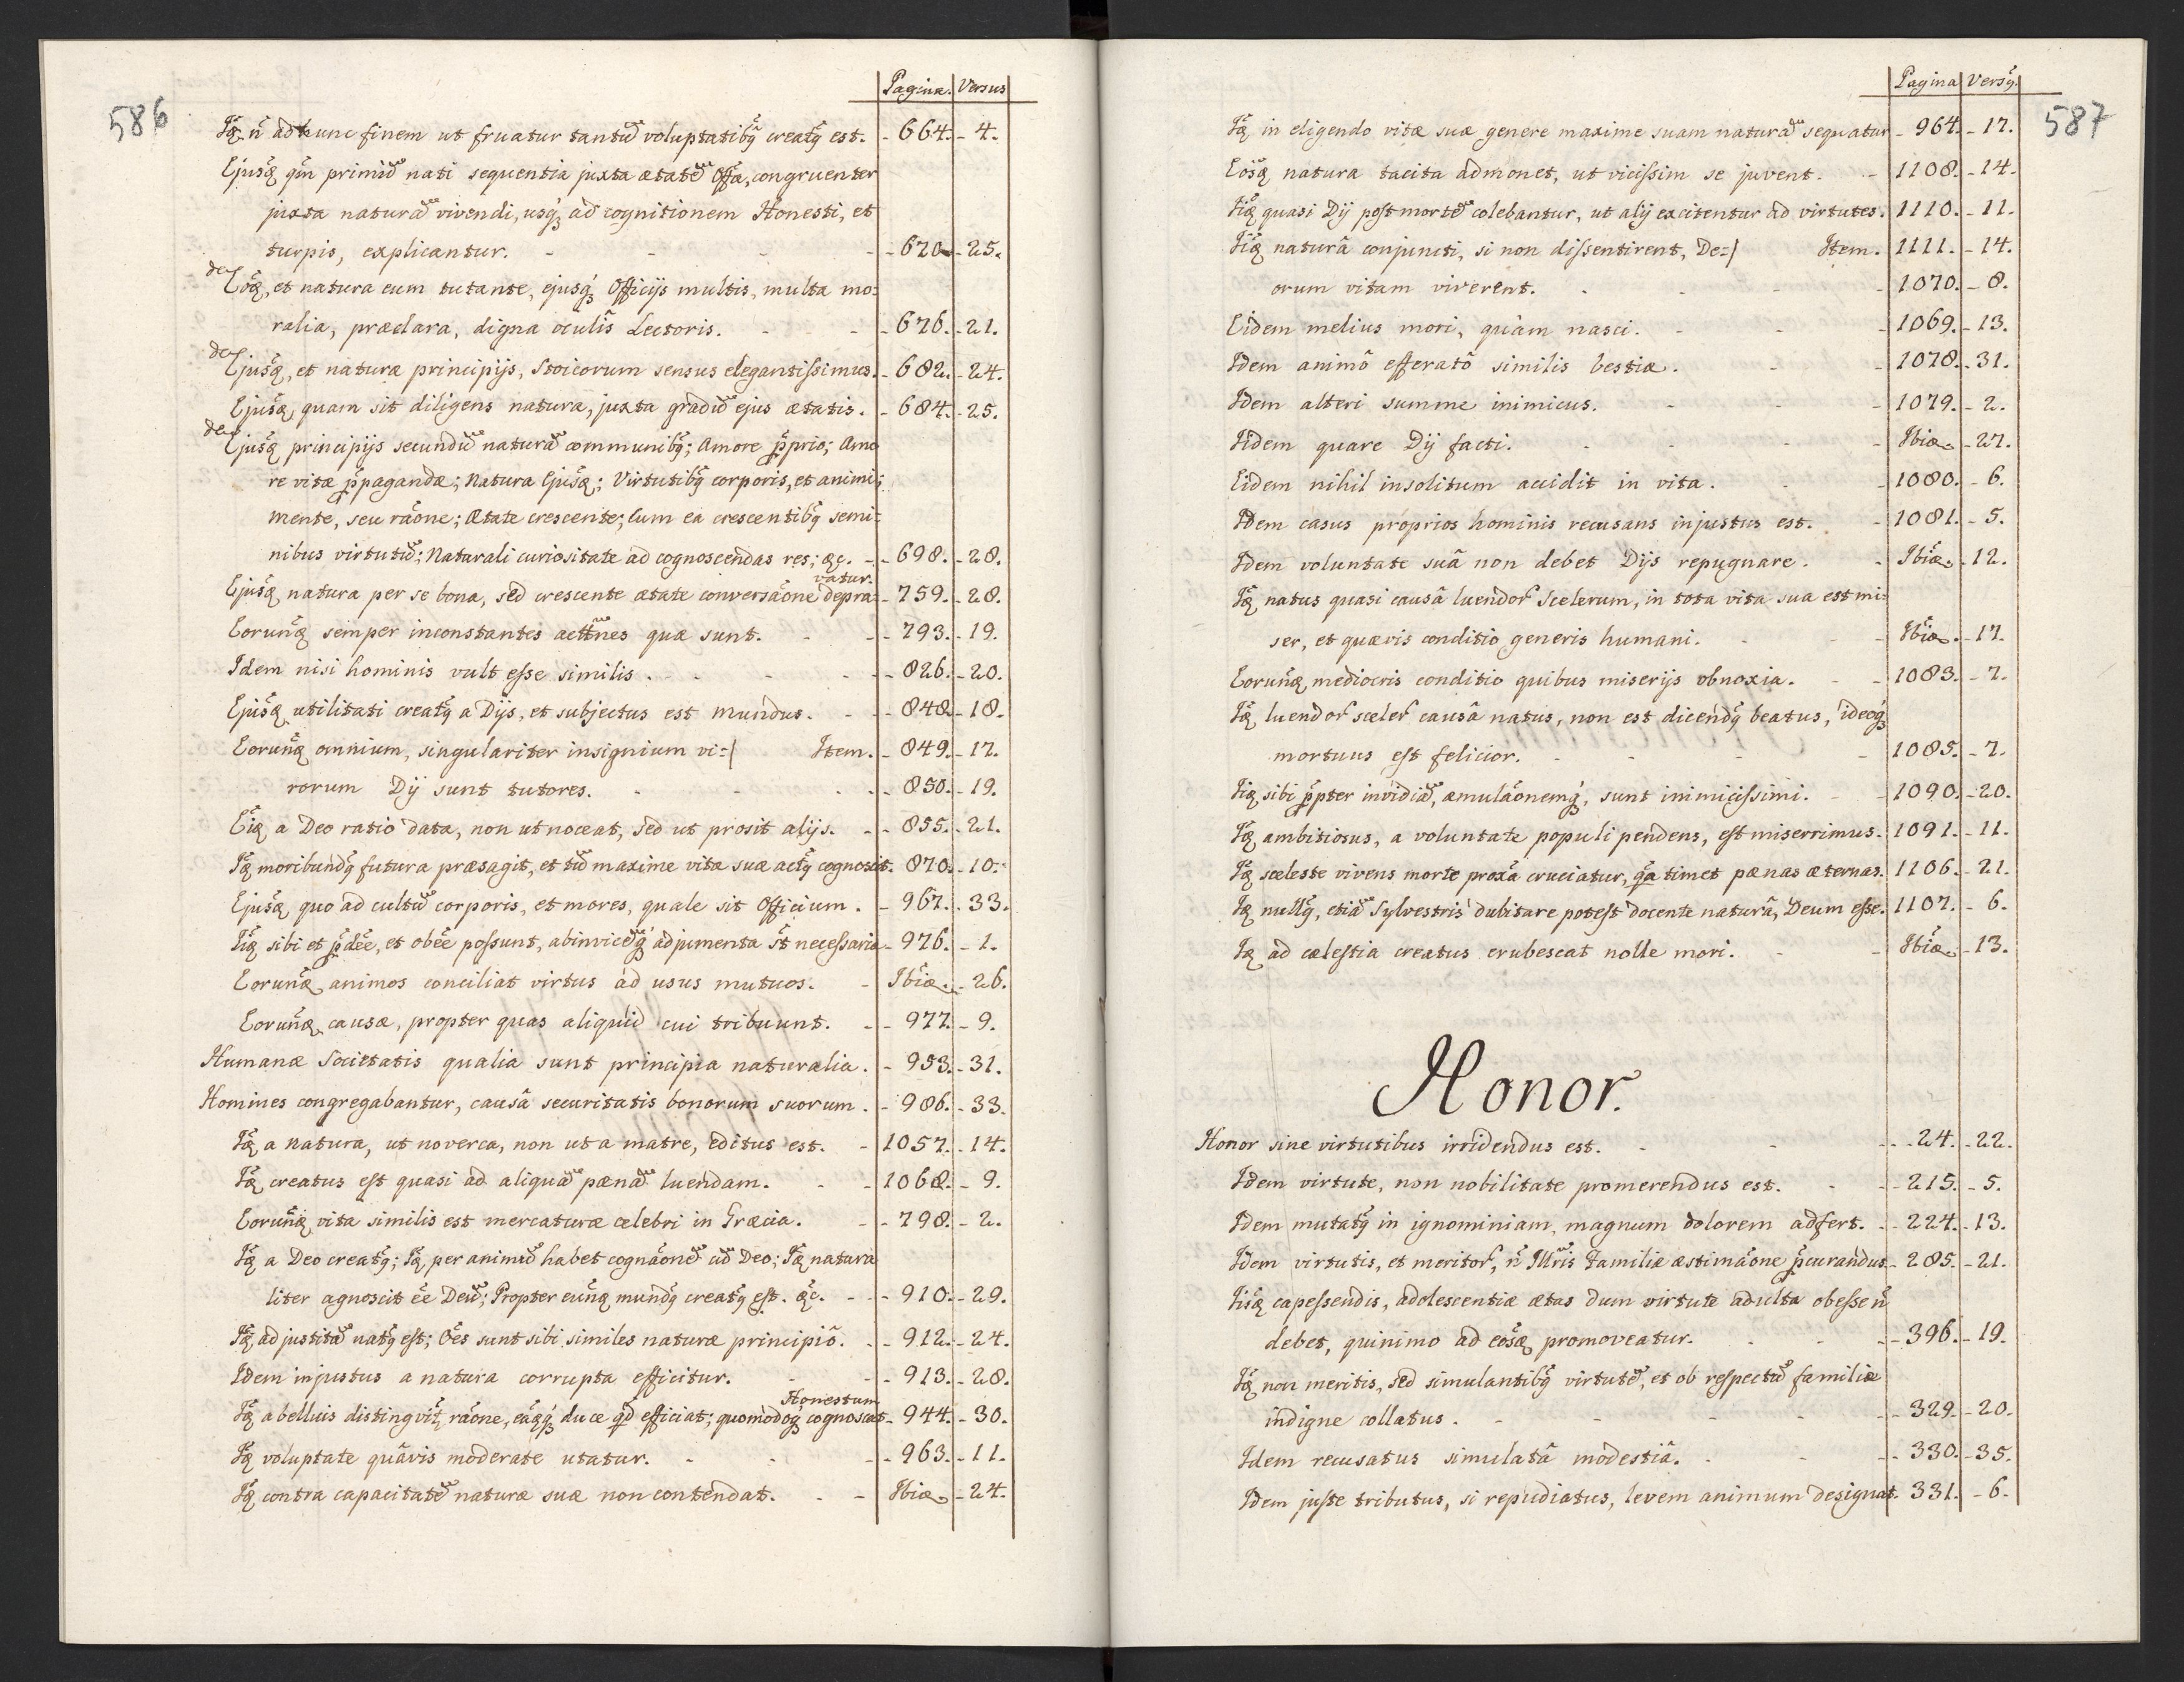 586
Pagina. Versus
Idẽ ñ ad hunc finem ut fruatur tantũ voluptatibꝫ creatꝫ est. - 664. - 4.
Ejusdẽ qũ primũ nati sequentia juxta ætatẽ Offa, congruenter
juxta naturã vivendi, usqꝫ ad cognitionem Honesti, et
turpis, explicantur. - 670 - 25.
de Eodẽ, et natura eum tutante, ejusqꝫ Officijs multis, multa mo:
ralia, præclara, digna oculis Lectoris. - 676. - 21.
de Ejusdẽ, et naturæ principijs, Stoicorum sensus elegantissimus. - 682. - 24.
Ejusdẽ, quam sit diligens natura, juxta gradũ ejus ætatis. - 684. - 25.
de Ejusdẽ principijs secundũ naturã communibꝫ; Amore p̃prio; Amo
re vitæ p̃pagandæ; Natura Ejusdẽ; Virtutibꝫ corporis, et animi;
mente, seu rãone; Ætate crescente; Cum ea crescentibꝫ semi:
nibus virtutũ; Naturali curiositate ad cognoscendas res; &c. - 698. - 28.
vatur.
Ejusdẽ natura per se bona, sed crescente ætate conversãone depra: - 759. - 28.
Eorundẽ semper inconstantes acttnes quæ sunt. - 793. - 19.
Idem nisi hominis vult esse similis. - 826. - 20.
Ejusdẽ utilitati creatꝫ a Dijs, et subjectus est mundus. - 848. - 18.
Eorundẽ omnium, singulariter insignium vi:/ Item. - 849. - 17.
rorum Dij sunt tutores. - 850. - 19.
Eidẽ a Deo ratio data, non ut noceat, sed ut prosit alijs. - 855. - 21.
Idẽ moribundꝫ futura præsagit, et tũ maxime vitæ suæ actꝫ cognoscit. 870. - 10.
Ejusdẽ quo ad cultũ corporis, et mores, quale sit Officium. - 967. - 33.
Iidẽ sibi et p̃dẽe, et obẽe possunt, abinvicẽqꝫ adjumenta s̃t necessaria - 976. - 1.
Eorundẽ animos conciliat virtus ad usus mutuos. - Ibidẽ. - 26.
Eorundẽ causæ, propter quas aliquid cui tribuunt. - 977. - 9.
Humanæ Societatis qualia sunt principia naturalia. - 953. - 31.
Homines congregabantur, causâ securitatis bonorum suorum. - 986. - 33.
Idẽ a natura, ut noverca, non ut a matre, editus est. - 1057. - 14.
Idẽ creatus est quasi ad aliquã pænã luendam. - 1068. - 9.
Eorundẽ vita similis est mercaturæ celebri in Græcia. - 798. - 2.
Idẽ a Deo creatꝫ; Idẽ per animũ habet cognãonẽ cũ Deo; Idẽ natura
liter agnoscit ẽe Deũ; Propter eundẽ mundꝫ creatꝫ est. &c. - 910. - 29.
Idẽ ad justitiã natꝫ est; Oẽs sunt sibi similes naturæ principiô. - 912. - 24.
Idem injustus a natura corrupta efficitur. - 913. - 28.
Honestum
Idẽ a belluis distingvit̃ rãone, eãqꝫ duce qd efficiat; quomodoqꝫ cognoscat - 944. - 30.
Idẽ voluptate quâvis moderate utatur. - 963. - 11.
Idẽ contra capacitatẽ naturæ suæ non contendat. - Ibidẽ - 24.
587
Pagina Versꝫ.
Idẽ in eligendo vitæ suæ genere maxime suam naturã sequatur - 964. - 17.
Eosdẽ natura tacita admonet, ut vicissim se juvent. - 1108. - 14.
Iidẽ quasi Dij post mortẽ colebantur, ut alij excitentur ad virtutes. 1110. - 11.
Iidẽ naturâ conjuncti, si non dissentirent, De:/ Item. 1111. - 14.
orum vitam viverent. - 1070. - 8.
Eidem melius mori, quàm nasci. - 1069. - 13.
Idem animô efferatô similis bestiæ. - 1078. - 31.
Idem alteri summe inimicus. - 1079. - 2.
Iidem quare Dij facti. - Ibidẽ - 27.
Eidem nihil insolitum accidit in vita. - 1080. - 6.
Idem casus proprios hominis recusans injustus est. - 1081. - 5.
Idem voluntate suâ non debet Dijs repugnare. - Ibidẽ. - 12.
Idẽ natus quasi causâ luendor̃ Scelerum, in tota vita sua est mi:
ser, et quævis conditio generis humani. - Ibidẽ. - 17.
Eorundẽ mediocris conditio quibus miserijs obnoxia. - 1083. - 7.
Idẽ luendor̃ sceler̃ causâ natus, non est dicendꝫ beatus, ideoqꝫ
mortuus est felicior. - 1085. - 7.
Iidẽ sibi p̃pter invidiã, æmulãonemqꝫ, sunt inimicissimi. - 1090. - 20.
Idẽ ambitiosus, a voluntate populi pendens, est miserrimus. 1091. - 11.
Idẽ sceleste vivens morte proxã cruciatur, qa timet pænas æternas. 1106. - 21.
Idẽ nullꝫ, etiã Sylvestris dubitare potest docente naturâ, Deum esse. 1107. - 6.
Idẽ ad cælestia creatus erubescat nolle mori. - Ibidẽ - 13.
Honor.
Honor sine virtutibus irridendus est. - 24. - 22.
Idem virtute, non nobilitate promerendus est. - 215. - 5.
Idem mutatꝫ in ignominiam, magnum dolorem adfert. - 224. - 13.
Idem virtutis, et meritor̃, ñ Illris Familiæ æstimãone p̃curandus - 285. - 21.
Iisdẽ capessendis, adolescentiæ ætas dum virtute adulta obesse ñ
debet, quinimo ad eosdẽ promoveatur. - 396. - 19.
Idẽ non meritis, sed simulantibꝫ virtutẽ, et ob respectũ familiæ
indigne collatus. - 329. - 20.
Idem recusatus simulatâ modestiâ. - 330. - 35.
Idem juste tributus, si repudiatus, levem animum designat. 331. - 6.